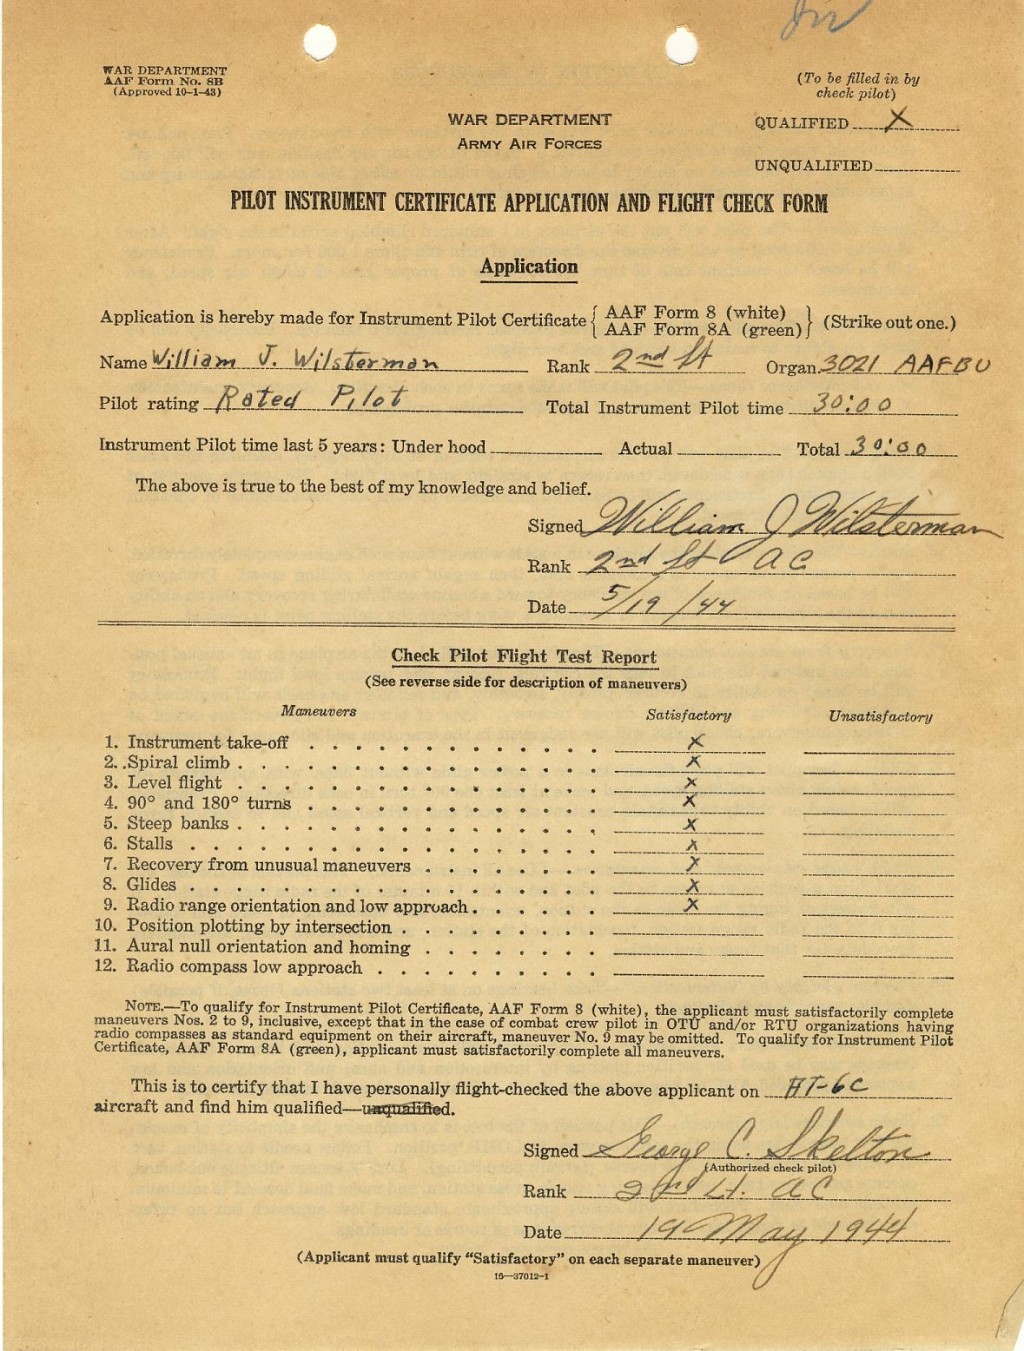 WAR DEPARTMENT
AAF Form No. 8B
(Approved 10-1-43)
(To be filled in by
check pilot)
WAR DEPARTMENT
ARMY AIR FORCES
QUALIFIED X
UNQUALIFIED
PILOT INSTRUMENT CERTIFICATE APPLICATION AND FLIGHT CHECK FORM
Application
Application is hereby made for Instrument Pilot Certificate { AAF Form 8 (white) } (Strike out one.)
{ AAF Form 8A (green) }
Name William J. Wilsterman Rank 2nd Lt Organ. 3021 AAFBU
Pilot rating Rated Pilot Total Instrument Pilot time 30:00
Instrument Pilot time last 5 years: Under hood Actual Total 30:00
The above is true to the best of my knowledge and belief.
Signed William J Wilsterman
Rank 2nd Lt AC
Date 5/19/44
Check Pilot Flight Test Report
(See reverse side for description of maneuvers)
Maneuvers Satisfactory Unsatisfactory
1. Instrument take-off X
2. Spiral climb X
3. Level flight X
4. 90° and 180° turns X
5. Steep banks X
6. Stalls X
7. Recovery from unusual maneuvers X
8. Glides X
9. Radio range orientation and low approach X
10. Position plotting by intersection
11. Aural null orientation and homing
12. Radio compass low approach
NOTE.—To qualify for Instrument Pilot Certificate, AAF Form 8 (white), the applicant must satisfactorily complete
maneuvers Nos. 2 to 9, inclusive, except that in the case of combat crew pilot in OTU and/or RTU organizations having
radio compasses as standard equipment on their aircraft, maneuver No. 9 may be omitted. To qualify for Instrument Pilot
Certificate, AAF Form 8A (green), applicant must satisfactorily complete all maneuvers.
This is to certify that I have personally flight-checked the above applicant on AT-6C
aircraft and find him qualified—unqualified.
Signed George C. Skelton
(Authorized check pilot)
Rank 2nd Lt. AC
Date 19 May 1944
(Applicant must qualify "Satisfactory" on each separate maneuver)
16—37012-1